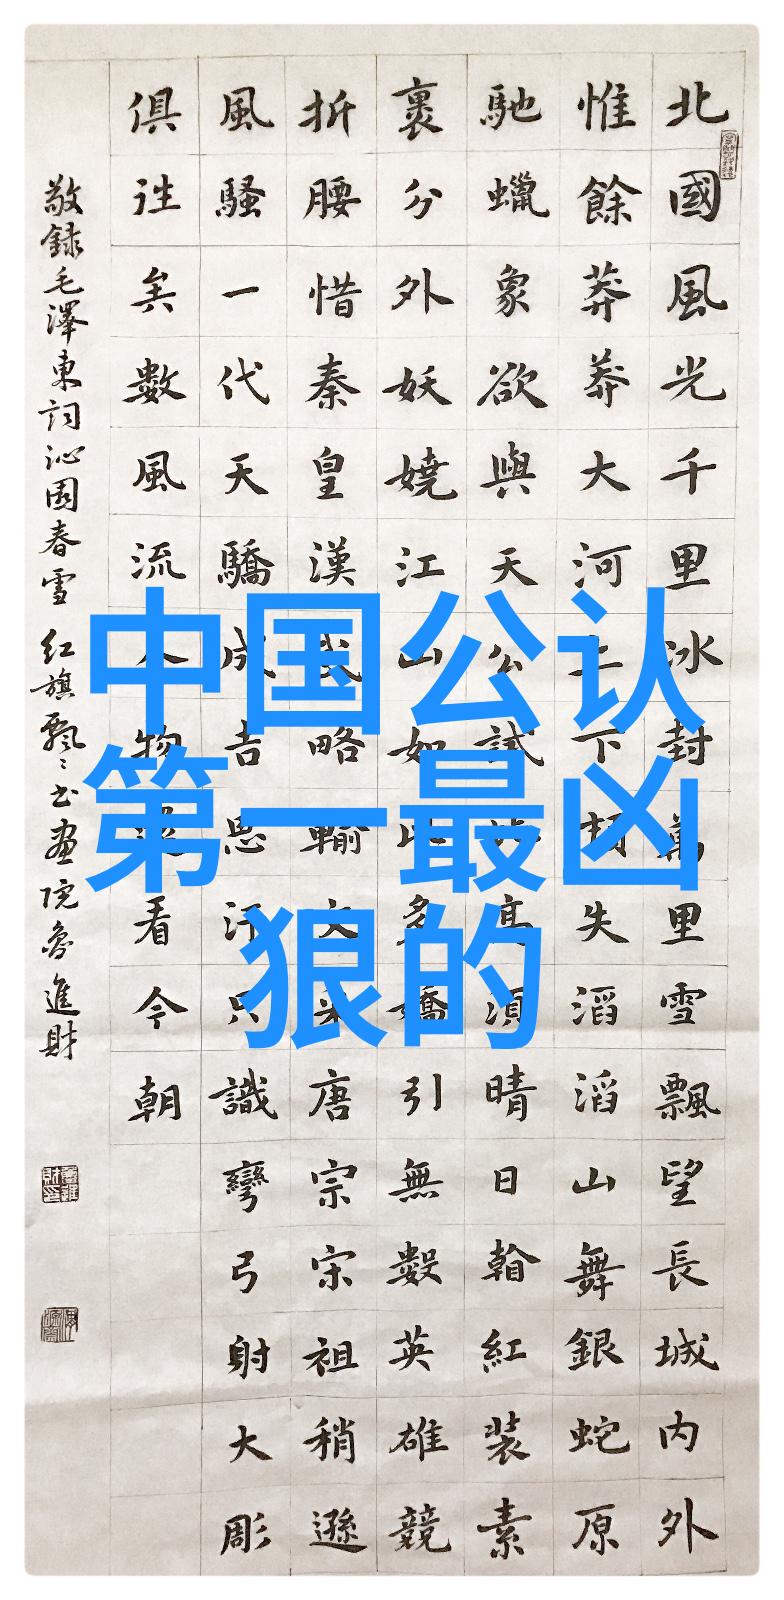 北國風光千里冰封萬里雪飄望長城內外
惟餘莽莽大河上下頓失滔滔山舞銀蛇原
馳蠟象欲與天公試比高須晴日看紅裝素
裹分外妖嬈江山如此多嬌引無數英雄競
折腰惜秦皇漢武略輸文采唐宗宋祖稍遜
風騷一代天驕成吉思汗只識彎弓射大彫
俱往矣數風流人物還看今朝
敬録毛澤東詞沁園春雪 紅旗飄飄书畫院魯進財
中国公认
第一最凶
狠的